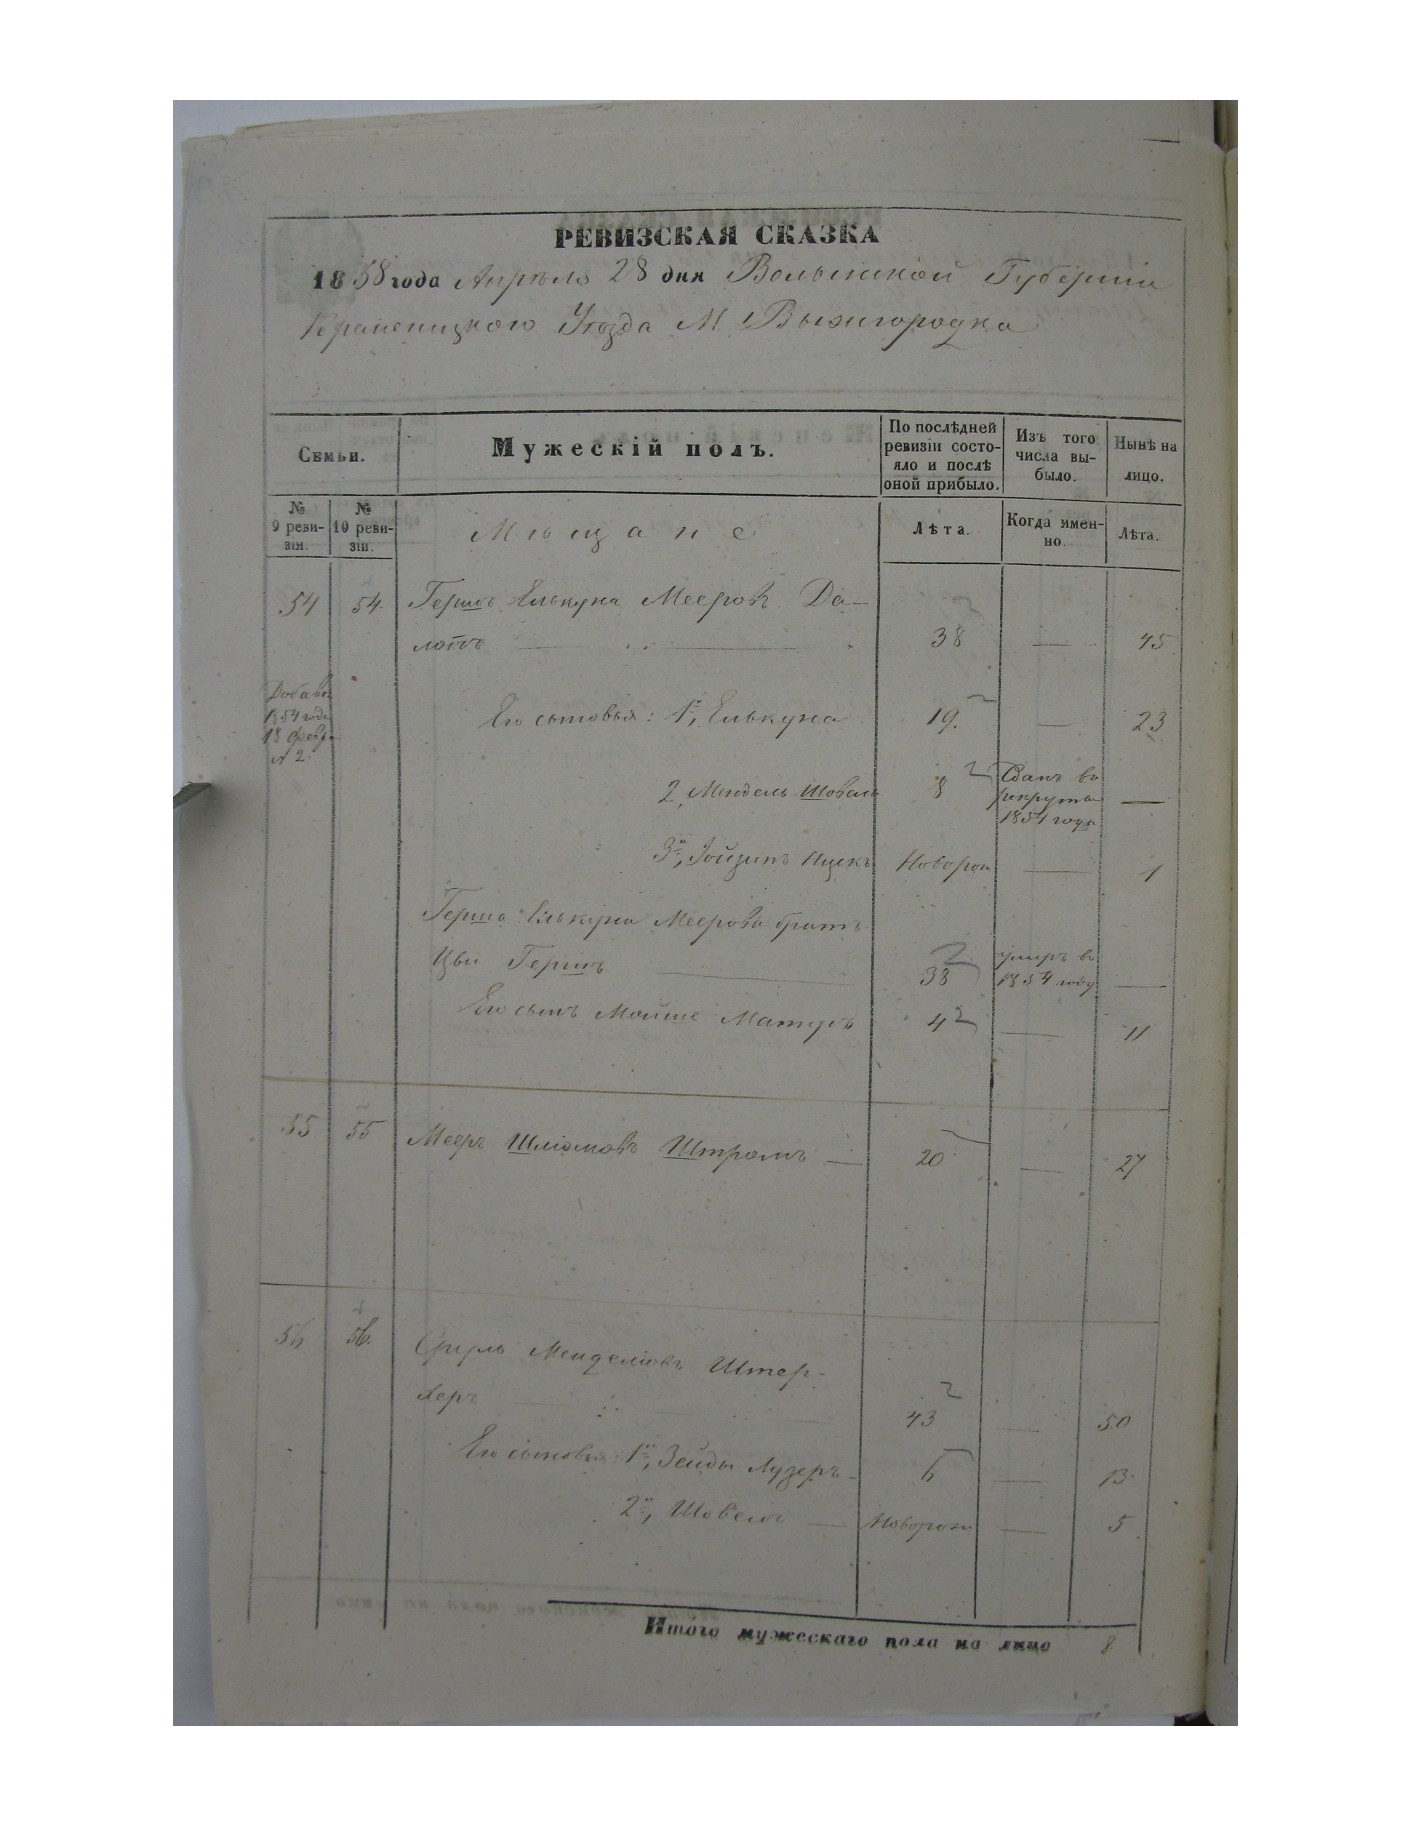 РЕВИЗСКАЯ СКАЗКА
1858 года Апрѣля 28 дня Волынской Губерніи
Кременецкаго Уѣзда М. Вышгородка
Семьи.
Мужескій полъ.
По послѣдней ревизіи состояло и послѣ оной прибыло.
Изъ того числа выбыло.
Нынѣ на лицо.
№ 9 ревизіи.
№ 10 ревизіи.
Мѣщане
Лѣта.
Когда именно.
Лѣта.
54 54. Гершъ Елькуна Мееровъ Да-
лотъ 38 — 45
Добавл.
1854 года
18 Февр.
№ 2.
Его сыновья: 1й, Елькуна 19. — 23
2, Мендель Шовель 8 Сданъ въ рекруты 1854 года —
3й, Ицекъ Новорож — 1
Герша Елькуна Меерова братъ
Цви Гершъ 38 умеръ въ 1854 году —
Его сынъ Мойше 4 — 11
55 55 Мееръ Шліомовъ Штромъ — 20 — 27
56 56. Сруль Менделіовъ Штер-
херъ 43 — 50
Его сыновья: 1й, Зейды Лузеръ 6 — 13
2й, Шовель — Новорож — 5
Итого мужескаго пола на лицо 8